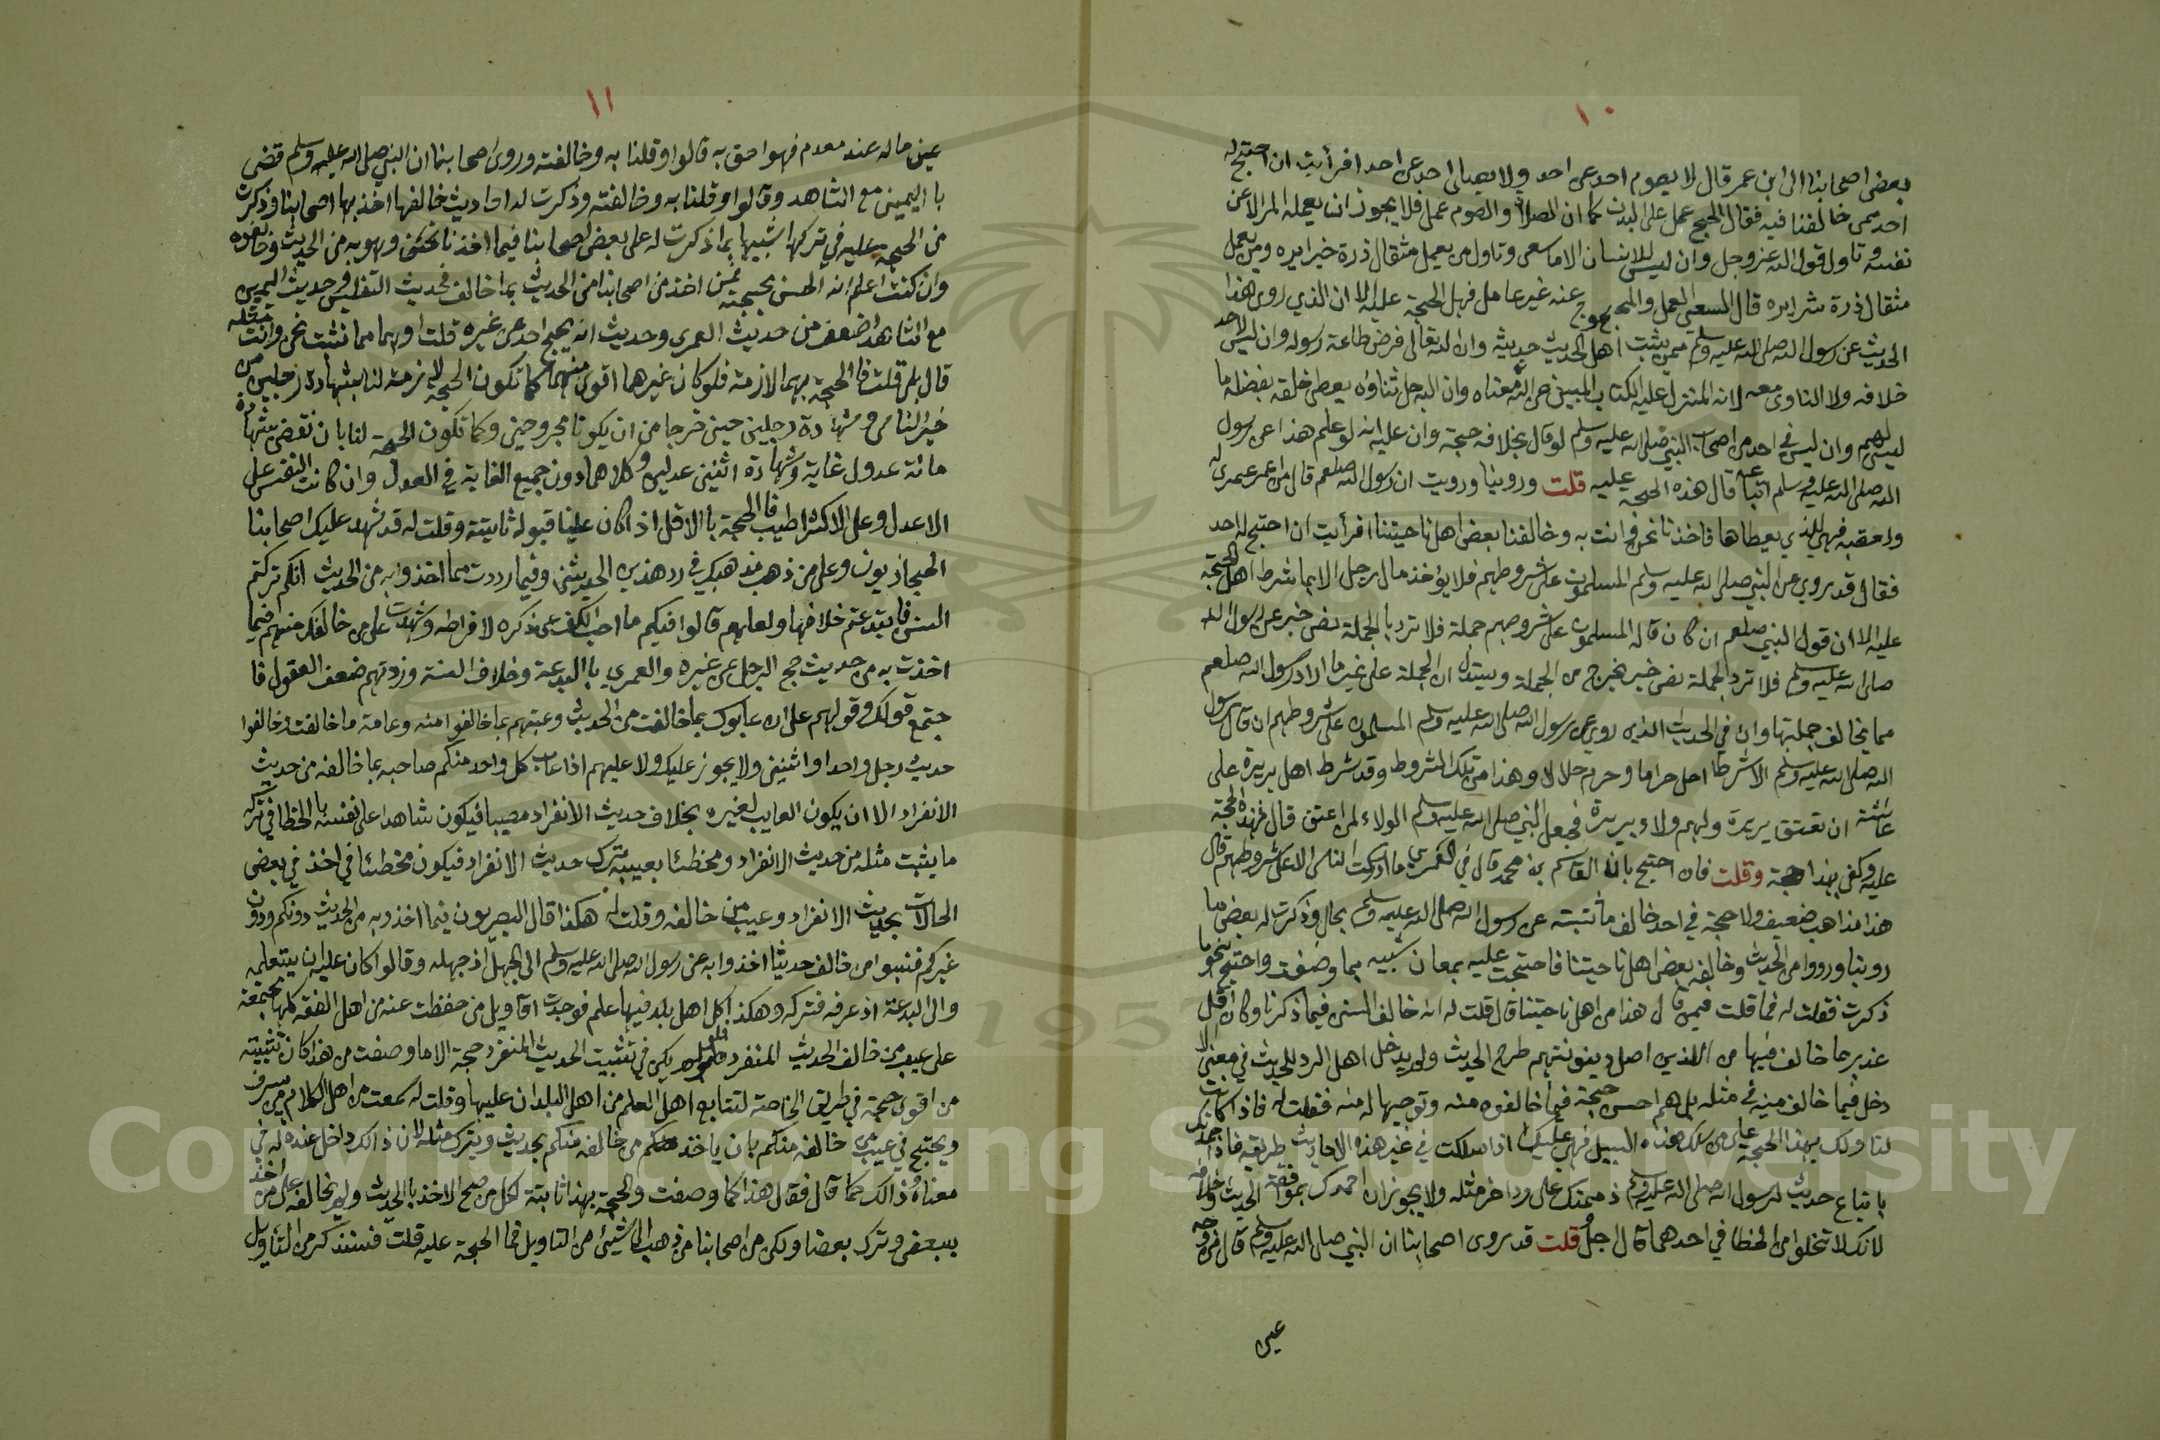 ١٠
بعض اصحابنا الى ابن عمر قال لا يصوم احد عن احد ولا يصلى احد عن احد افرأيت ان احتج له
احد ممن خالفنا فيه فقال الحج عمل على البدن كما ان الصلاة والصوم عمل فلا يجوز ان يعمله المرء الا عن
نفسه وتاول قول الله عز وجل وان ليس للانسان الا ما سعى وتاول من يعمل مثقال ذرة خيرا يره ومن يعمل
مثقال ذرة شرا يره قال السعى العمل والمحجوج عنه غير عامل فهل الحجة عليه الا ان الذي روى هذا
الحديث عن رسول الله صلى الله عليه وسلم ممن يثبت اهل الحديث حديثه وان الله تعالى فرض طاعة رسوله وان ليس لاحد
خلافه ولا التاول معه لانه المنزل عليه الكتاب المبين عن الله معناه وان الله جل ثناؤه يعطى خلقه بفضله ما
ليس لهم وان ليس في احد من اصحاب النبي صلى الله عليه وسلم لو قال بخلافه حجة وان عليه انه لو علم هذا عن رسول
الله صلى الله عليه وسلم اتباعه قال هذه الحجة عليه قلت وروينا ورويت ان رسول الله صلعم قال من اعمر عمرى له
ولعقبه فهي للذي يعطاها فاخذنا نحن وانت به وخالفنا بعض اهل ناحيتنا افرأيت ان احتج له احد
فقال قد روي عن النبي صلى الله عليه وسلم المسلمون على شروطهم فلا يؤخذ مال رجل الا بما شرط اهل الحجة
عليه الا ان قول النبي صلعم ان كان قاله المسلمون على شروطهم جملة فلا ترد بالجملة نص خبر عن رسول الله
صلى الله عليه وسلم فلا ترد الجملة نص خبر يخرج من الجملة ويستدل ان الجملة على غير ما اراد رسول الله صلعم
مما يخالف جملتها وان في الحديث الذى روي عن رسول الله صلى الله عليه وسلم المسلمون على شروطهم ان قال رسول
الله صلى الله عليه وسلم الا شرطا احل حراما وحرم حلالا وهذا من تلك الشروط وقد شرط اهل بريرة على
عائشة ان تعتق بريرة ولهم ولاء بريرة فجعل النبي صلى الله عليه وسلم الولاء لمن اعتق قال فهذه الحجة
عليه وكفى بهذا حجة وقلت فان احتج بان القاسم بن محمد قال في العمرى ما ادركت الناس الا على شروطهم قال
هذا مذاهب ضعيف ولا حجة في احد خالف ما نثبته عن رسول الله صلى الله عليه وسلم بحال وذكرت له بعض ما
روينا ورووا من الحديث وخالفه بعض اهل ناحيتنا فاحتججت عليه بمعان شبيه بما وصفت واحتج بنحو ما
ذكرت فقلت له فما قلت فيمن قال هذا من اهل ناحيتنا قال قلت له انه خالف السنن فيما ذكرنا وكان اقل
عذيرا خالف فيها من الذين اصل دينونتهم طرح الحديث ولم يدخل اهل الرد للحديث في معنى الا
دخل فيما خالف منه في مثله بل هم احسن حجة فيما خالفوه منه وتوجيها له منه فقلت له فاذ اكانت
لنا ولك بهذا الحجة على من سلك هذه السبيل فهى عليك اذا سلكت في غير هذه الاحاديث طريقه فاذ احمدتك
باتباع حديث لرسول الله صلى الله عليه وسلم ذممتك على رد اخر مثله ولا يجوز ان احمدك بموافقة الحديث وخلافه
لانك لا تخلوا من الخطا في احدهما قال اجل قلت قد روى اصحابنا ان النبي صلى الله عليه وسلم قال من وجد
عين
١١
عين ماله عند معدم فهو احق به قالوا وقلنا به وخالفته وروى اصحابنا ان النبي صلى الله عليه وسلم قضى
باليمين مع الشاهد وقالوا وقلنا به وخالفته وذكرت له احاديث خالفها اخذ بها اصحابنا وذكرت
من الحجة عليه في تركها شبيها بما ذكرت له على بعض اصحابنا فيما اخذنا نحن وهو به من الحديث وخالفوه
وان كنت اعلم انه الحسن بحجته ممن اخذ من اصحابنا من الحديث بما خالف حديث التفليس وحديث اليمين
مع الشاهد اضعف من حديث العمرى وحديث ان يحج احد عن غيره قلت او هما مما نثبت نحن وانت مثله
قال بلى قلت فالحجة بهما لازمة فلو كان غيرهما اقوى منهما كما تكون الحجة لازمة لنا بشهادة رجلين من
خير الناس وشهادة رجلين حين خرجا من ان يكونا مجروحين وكما تكون الحجة لنا بان نقضى بشهادة
مائة عدول غاية وشهادة اثنين عدلين وكلاهما دون جميع الغاية في العدل وان كانت النفس على
الاعدل وعلى الاكثر اطيب فالحجة بالاقل اذ اكان علينا قبوله ثابتة وقلت له قد شهد عليك اصحابنا
الحجازيون وعلى من ذهب مذهبك في رد هذين الحديثين وفيما رددت مما اخذوا به من الحديث انكم تركتم
السنن وابتدعتم خلافها ولعلهم قالوا فيكم ما احب الكف عن ذكره لافراطه وشهدت على من خالفك منهم فيما
اخذت به من حديث حج الرجل عن غيره والعمرى بالبدعة وخلاف السنة وزدتهم ضعف العقول فا
جتمع قولك وقولهم على ان عابوك بما خالفت من الحديث وعبتهم بما خالفوا منه وعامة ما خالفت وخالفوا
حديث رجل واحد او اثنين ولا يجوز عليك ولا عليهم اذا عاب كل واحد منكم صاحبه بما خالفه من حديث
الانفراد الا ان يكون العايب لغيره بخلاف حديث الانفراد مصيبا فيكون شاهدا على نفسه بالخطا في تركه
ما يثبت مثله من حديث الانفراد ومخطئا بعيبه ترك حديث الانفراد فيكون مخطئا في اخذ في بعض
الحالات بحديث الانفراد وعيب من خالفه وقلت له هكذا قال البصريون فيما اخذوا به من الحديث دونكم ودون
غيركم فنسبوا من خالف حديثا اخذوا به عن رسول الله صلى الله عليه وسلم الى الجهل اذ جهله وقالوا كان عليه ان يتعلمه
والى البدعة اذ عرفه فتركه وهكذا كل اهل بلد فيها علم فوجدت اقاويل من حفظت عنه من اهل الفقه كلها مجتمعة
على عيب من خالف الحديث المنفرد فلو لم يكن في تثبيت الحديث المنفرد حجة الا ما وصفت من هذا كان تثبيته
من اقوى حجة في طريق الخاصة لتتابع اهل العلم من اهل البلدان عليها وقلت له سمعت من اهل الكلام من يسرف
ويحتج في عيب من خالفه منكم بان ياخذ منكم من خالفه منكم بحديث ويترك مثله لان ذالك داخل عنده له في
معناه ذالك كما قال فقال هذا كما وصفت والحجة بهذا ثابتة لكل من صحح الاخذ بالحديث ولم يخالفه على من اخذ
ببعض وترك بعضا ولكن من اصحابنا من ذهب الى شيئ من التاويل فما الحجة عليه قلت فسنذكر من التاويل